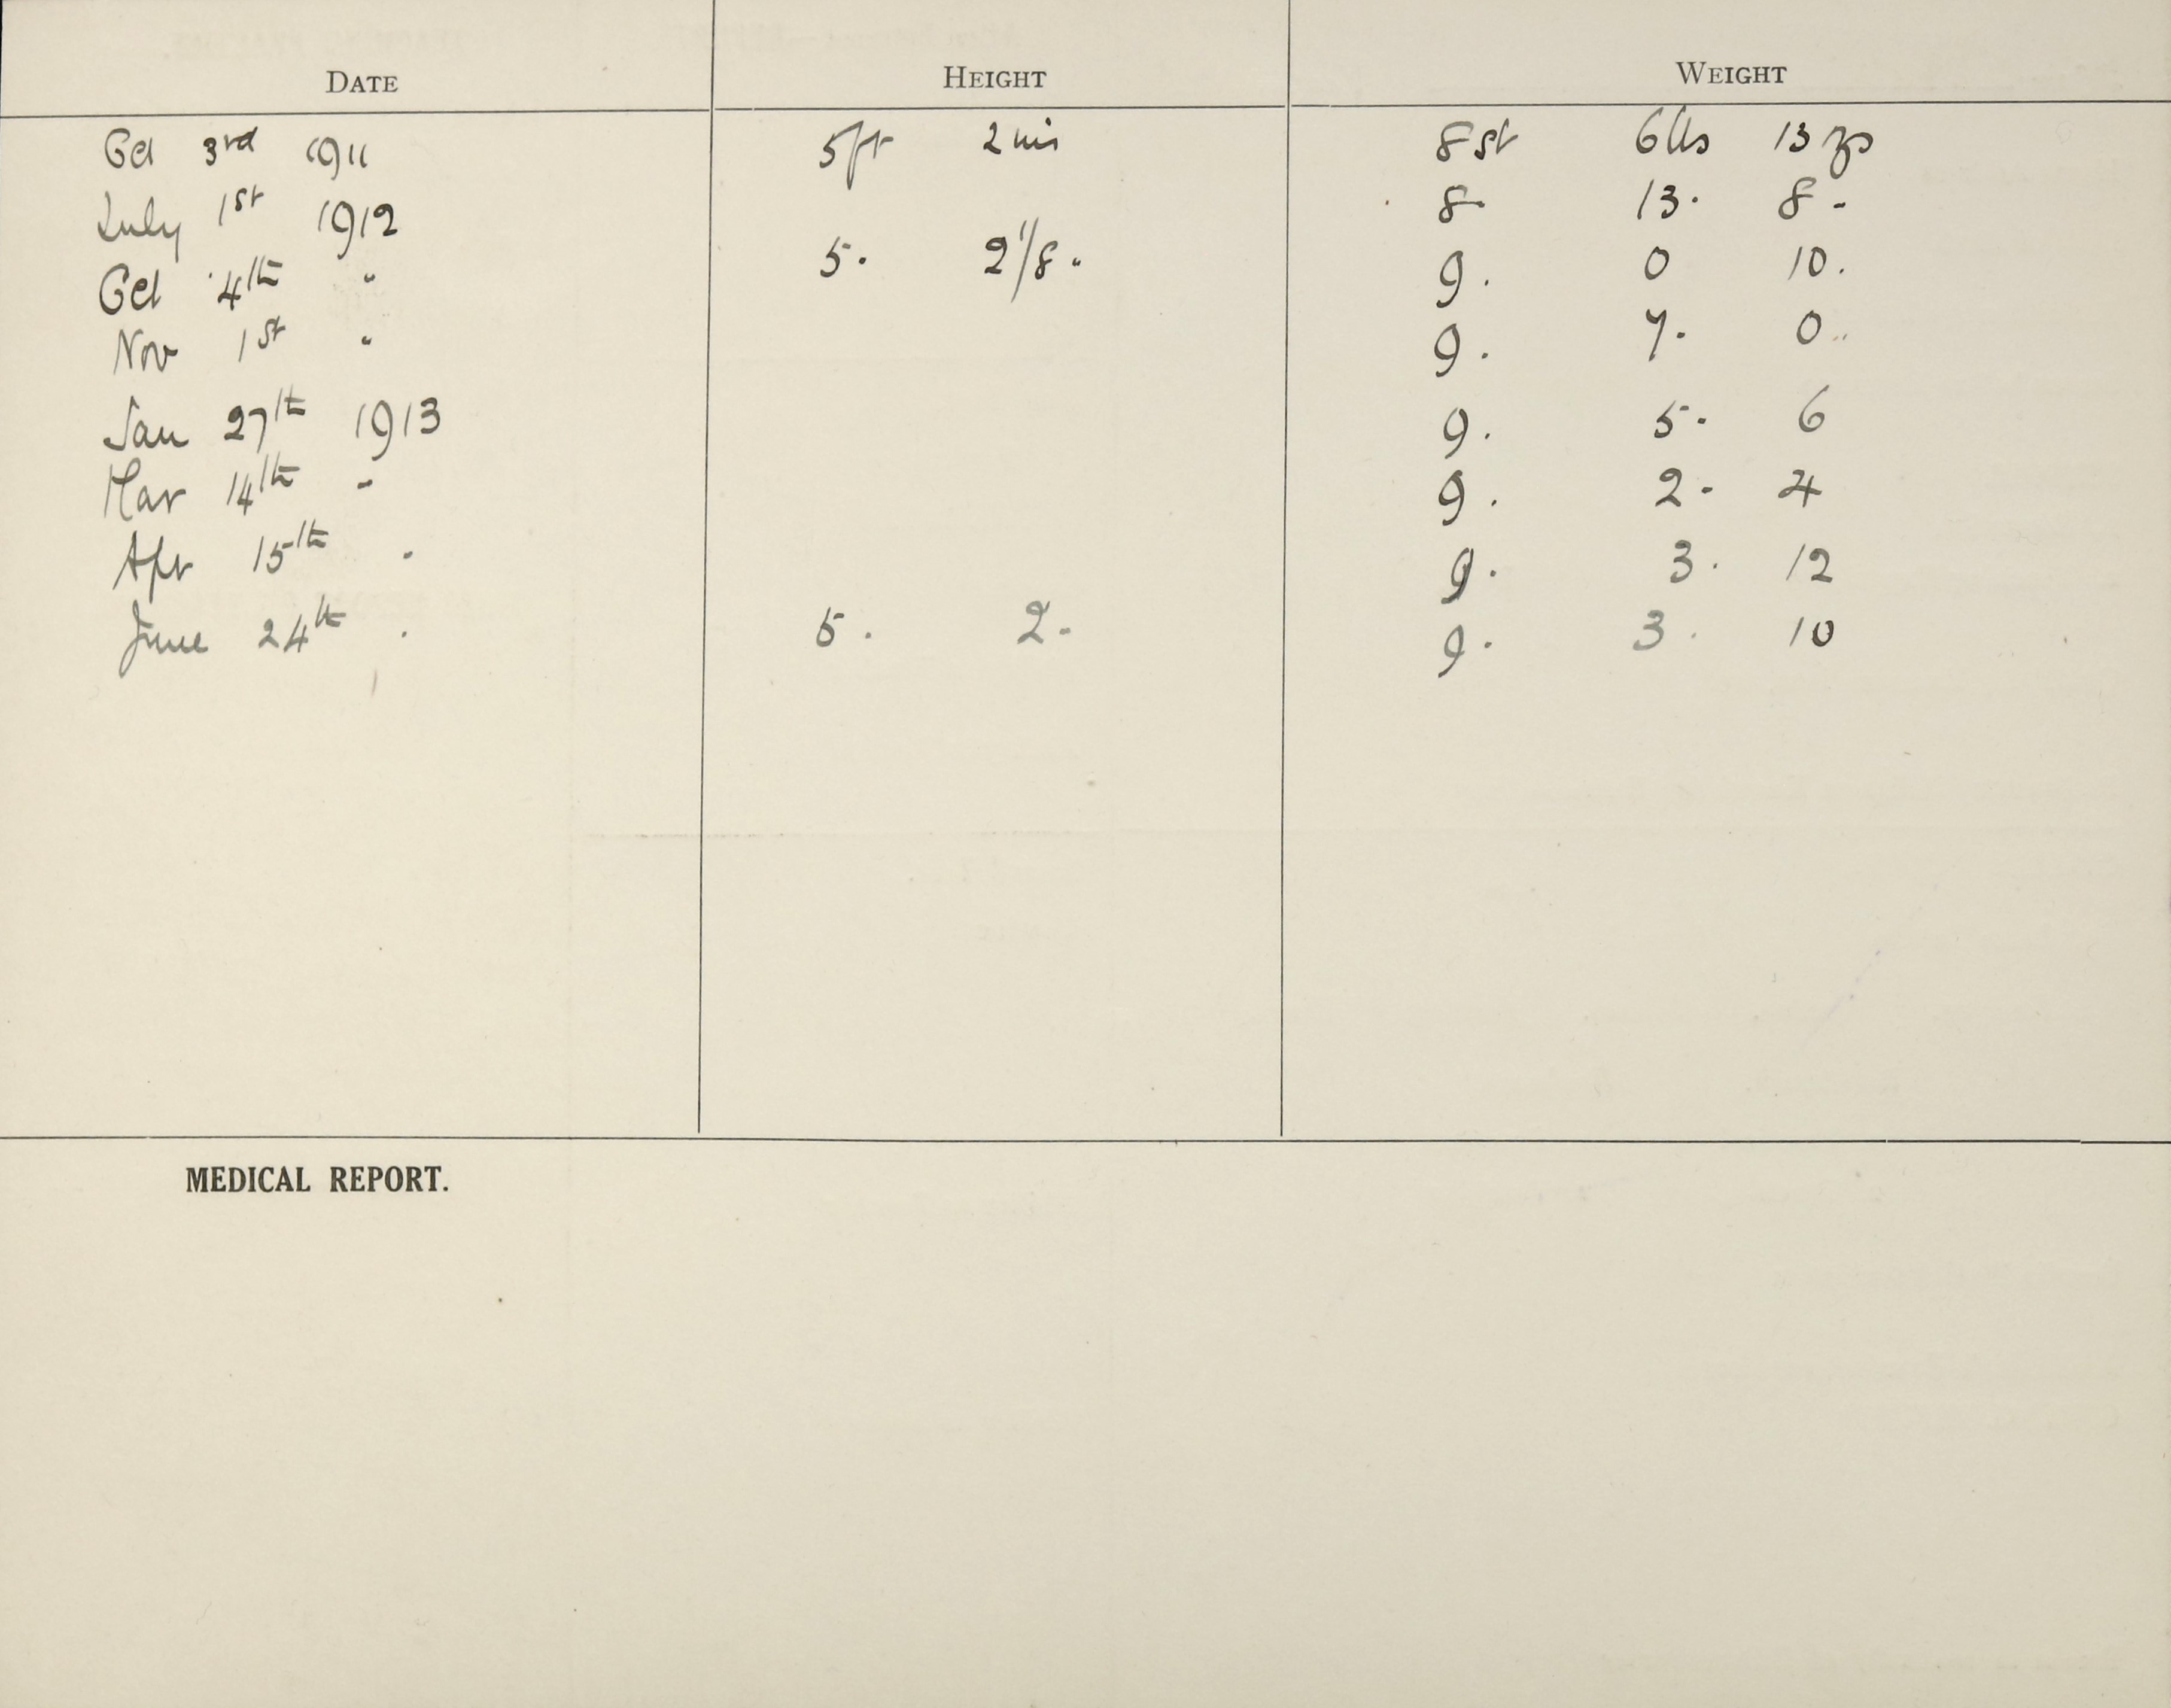 DATE HEIGHT WEIGHT
Oct 3rd 1911 5ft 2ins 8st 6lbs 13ozs
July 1st 1912 8. 13. 8 -
Oct 4th " 5. 2 1/8 " 9. 0 10.
Nov 1st " 9. 7. 0 "
Jan 27th 1913 9. 5. 6
Mar 14th " 9. 2 - 4
Apr 15th . 9. 3. 12
June 24th . 5. 2 - 9. 3. 10
MEDICAL REPORT.